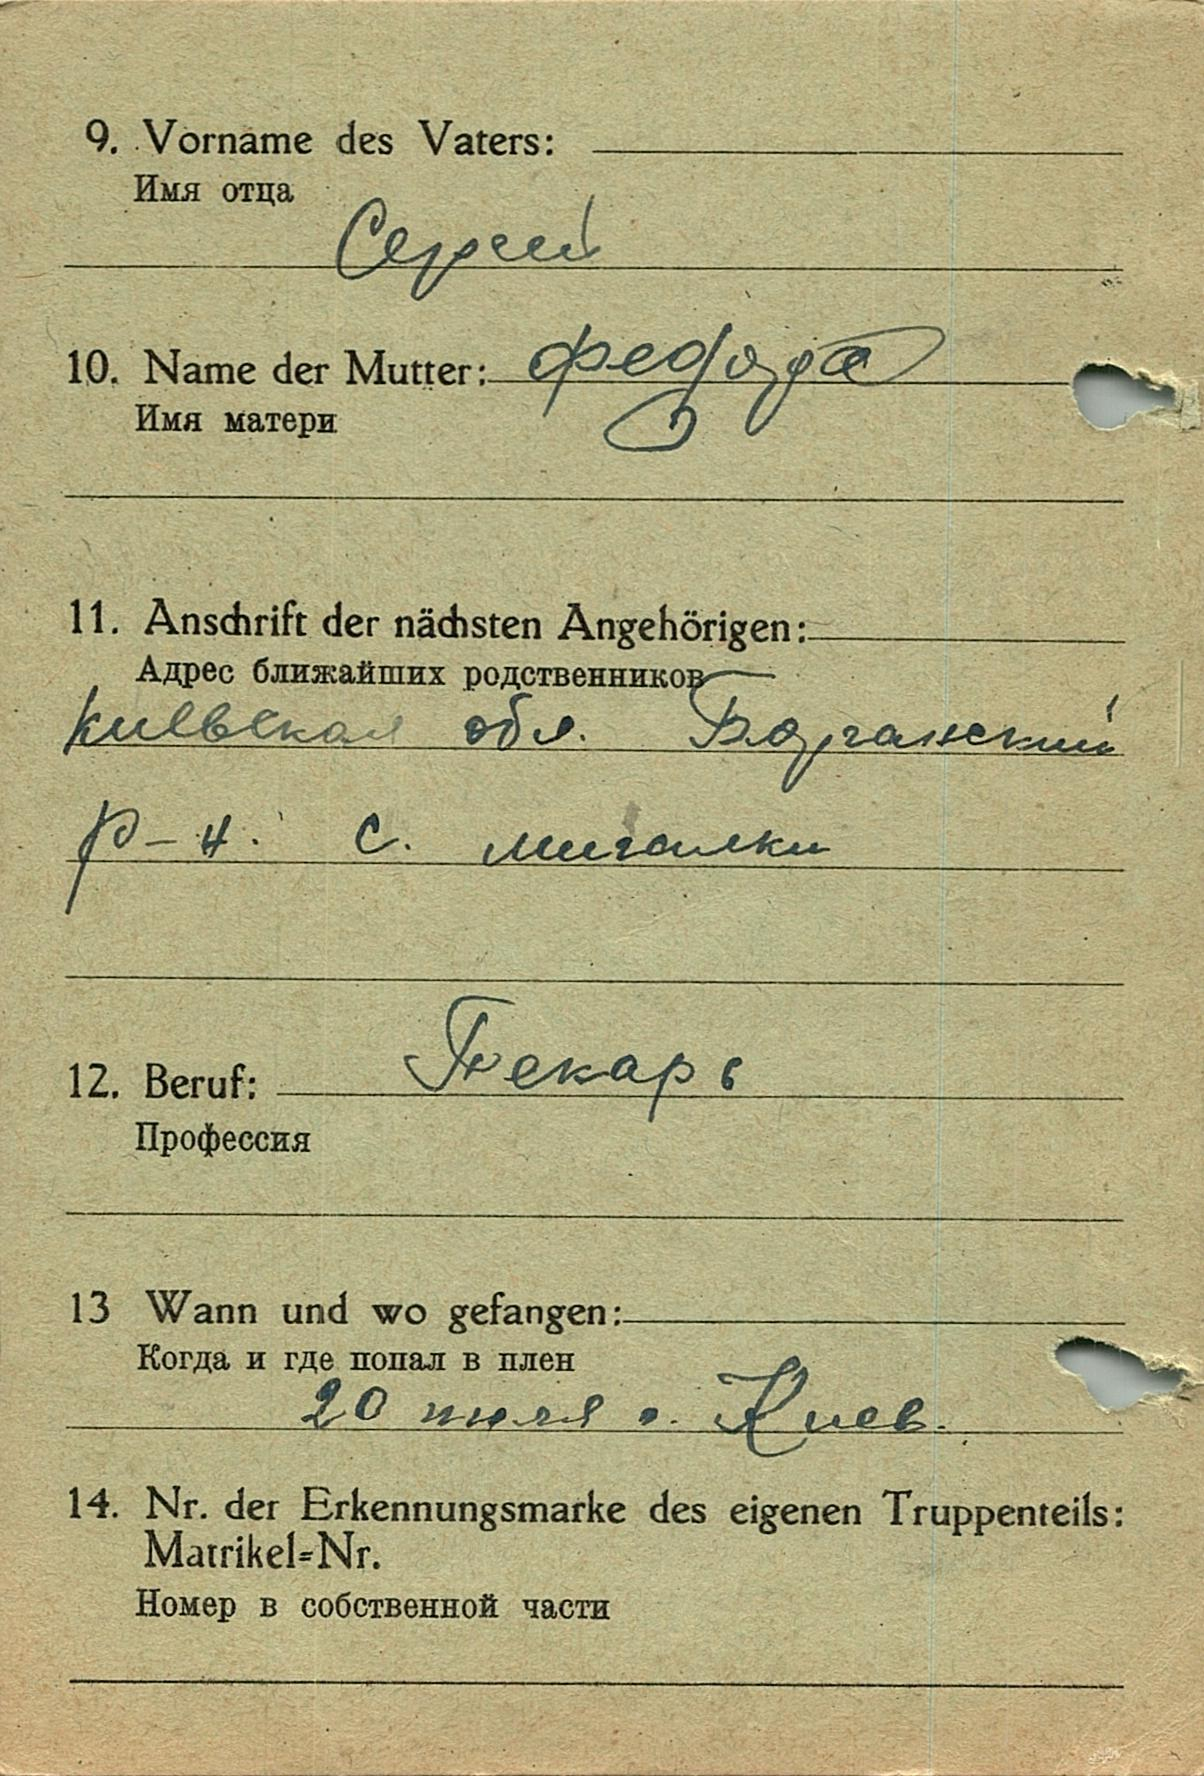 9. Vorname des Vaters:
Имя отца
Сергей
10. Name der Mutter:
Имя матери
11. Anschrift der nächsten Angehörigen:
Адрес ближайших родственников
киевская обл.
р-н. с. мигалки
12. Beruf: Пекарь
Профессия
13 Wann und wo gefangen:
Когда и где попал в плен
20 июля г. Киев.
14. Nr. der Erkennungsmarke des eigenen Truppenteils:
Matrikel=Nr.
Номер в собственной части